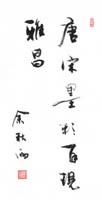 唐宋墨影百现
雅昌
余秋雨